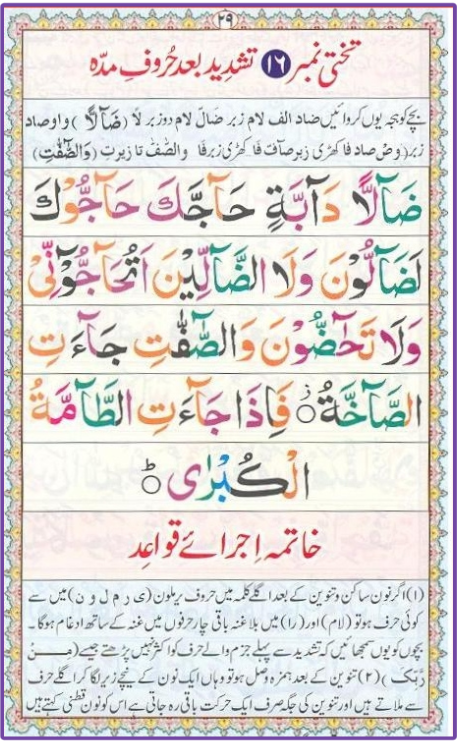 ۲۹
تختی نمبر ۱۶ تشدید بعد حُروفِ مدّہ
بچے کو ہجہ یوں کروائیں ضاد الف لام زبر ضَالَ لام دو زبر لاً (ضَآلًّا) واو صاد
زبر (وَصْ صاد فا کھڑی زبر صآفّ فا کھڑی زبر فٰا والصّٰف تا زیر تِ (وَالصّٰٓفّٰتِ)
ضَآلًّا دَآبَّةٍ حَآجَّكَ حَآجُّوْكَ
لَضَآلُّوْنَ وَلَا الضَّآلِّيْنَ اَتُحَآجُّوْٓنِّيْ
وَلَا تَحٰٓضُّوْنَ وَالصّٰٓفّٰتِ جَآءَتِ
الصَّآخَّةُ۝ فَاِذَا جَآءَتِ الطَّآمَّةُ
الْكُبْرٰى۝ؕ
خاتمہ اِجرائے قواعِد
(۱) اگر نون ساکن و تنوین کے بعد اگلے کلمہ میں حروف یرملون (ی ر م ل و ن) میں سے
کوئی حرف ہو تو (لام) اور (را) میں بلا غنہ باقی چار حرفوں میں غنہ کے ساتھ ادغام ہوگا۔
بچوں کو یوں سمجھائیں کہ تشدید سے پہلے جزم والے حرف کو اکثر نہیں پڑھتے جیسے (مِنْ
رَّبِّكَ) (۲) تنوین کے بعد ہمزہ وصل ہو تو وہاں ایک نون کے نیچے زیر لگا کر اگلے حرف
سے ملاتے ہیں اور تنوین کی جگہ صرف ایک حرکت باقی رہ جاتی ہے اس کو نون قطنی کہتے ہیں